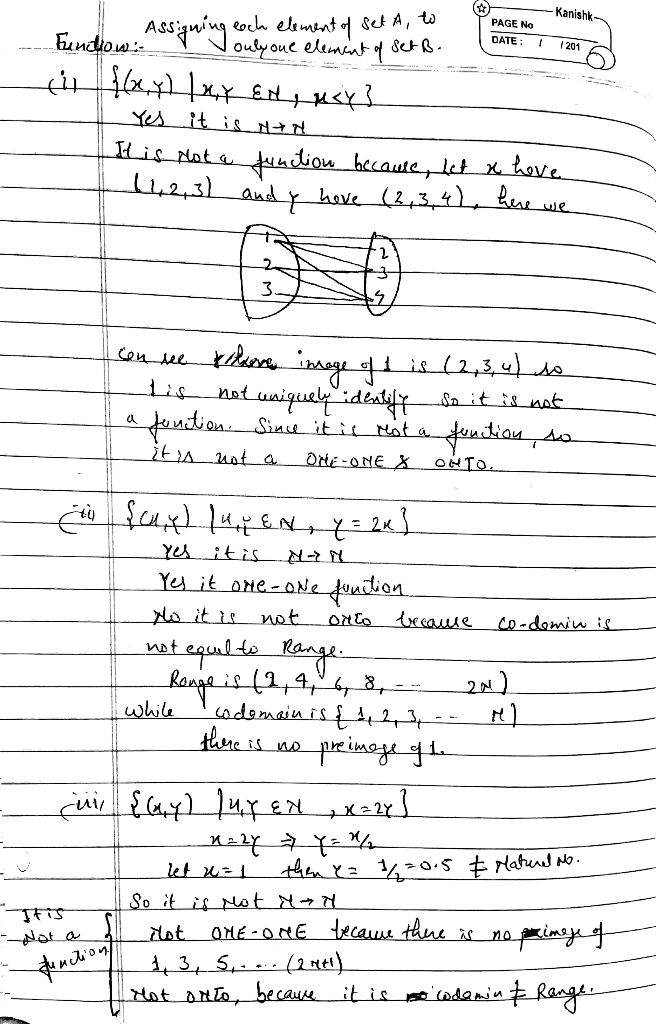 Assigning each element of set A, to
Function:- only one element of set B.
Kanishk
PAGE No
DATE: / / 201
(i) {(x,y) | x,y ∈ N, x<y}
Yes it is N→N
It is Not a function because, Let x have
(1,2,3) and y have (2,3,4), here we
1
2
3
2
3
4
can see image of 1 is (2,3,4) so
1 is not uniquely identify so it is not
a function. Since it is Not a function, so
it is not a ONE-ONE & ONTO.
(ii) {(x,y) | x,y ∈ N, y = 2x}
Yes it is N→N
Yes it ONE-ONE function
No it is not ONTO because co-domin is
not equal to Range.
Range is (2, 4, 6, 8, -- 2N)
while codomain is { 1, 2, 3, -- N)
there is no preimage of 1.
(iii) {(x,y) | x,y ∈ N, x=2y}
x=2y ⇒ y = x/2
let x=1 then y = 1/2 = 0.5 ≠ Natural No.
So it is Not N→N
It is
Not a
function
Not ONE-ONE because there is no pimage of
1, 3, 5, .... (2N+1)
Not ONTO, because it is codamin ≠ Range.